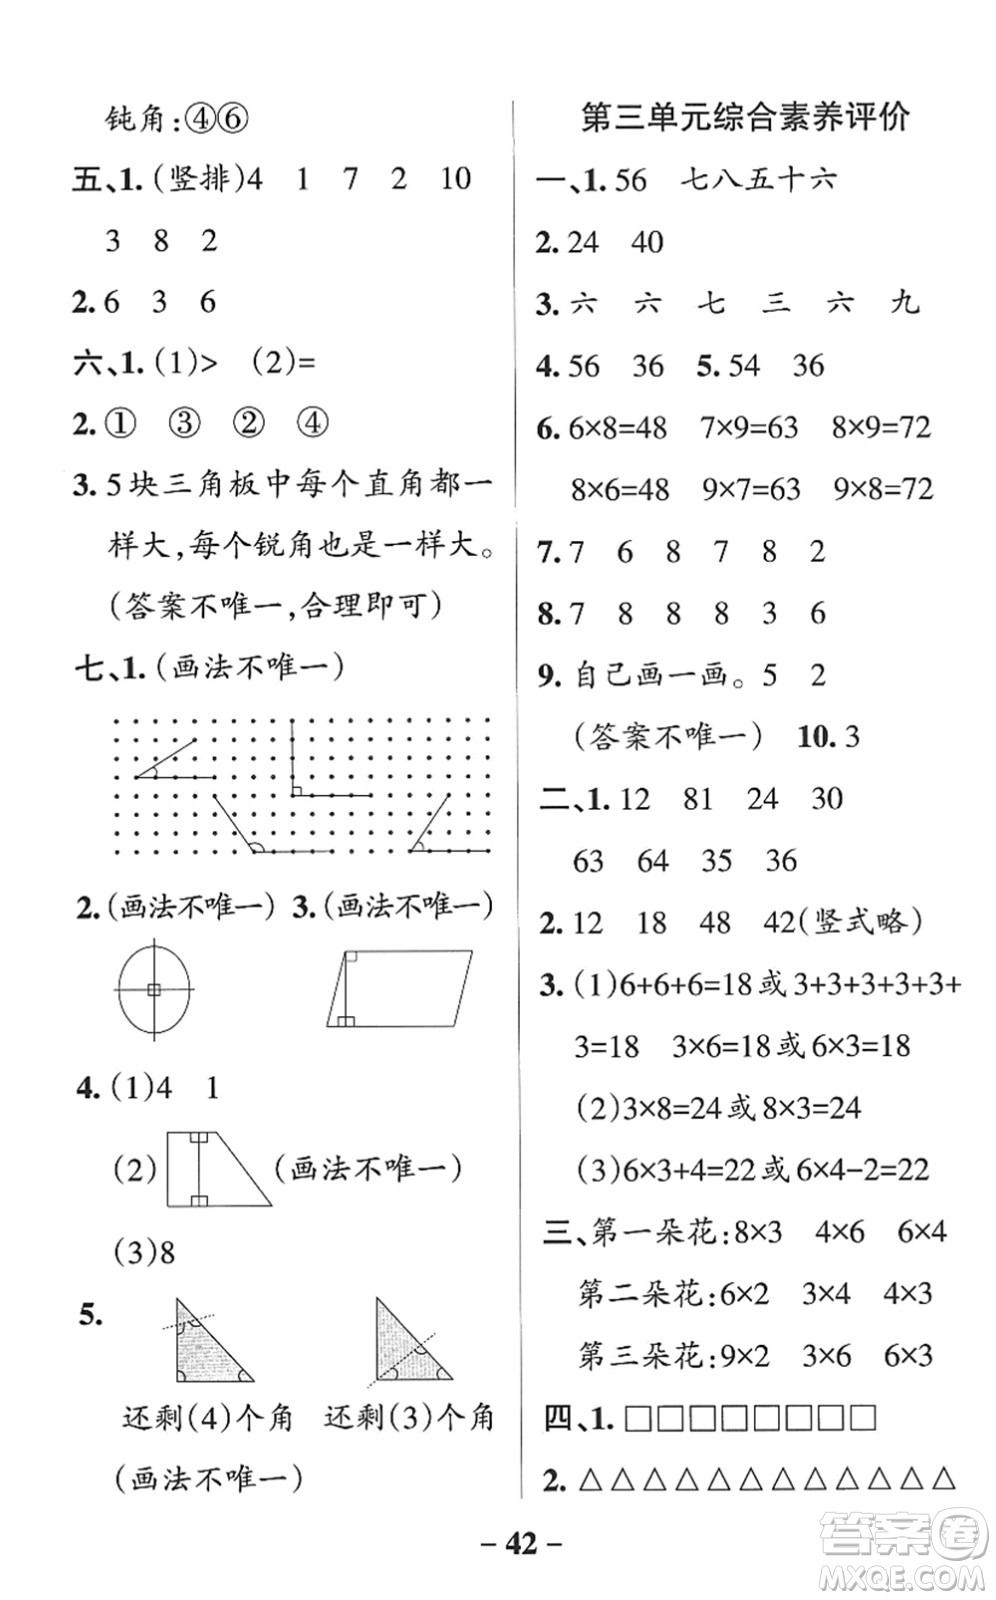 钝角:④⑥
五、1.(竖排)4 1 7 2 10
3 8 2
2.6 3 6
六、1.(1)> (2)=
2.① ③ ② ④
3.5块三角板中每个直角都一
样大,每个锐角也是一样大。
(答案不唯一,合理即可)
七、1.(画法不唯一)
2.(画法不唯一) 3.(画法不唯一)
4.(1)4 1
(2) (画法不唯一)
(3)8
5.
还剩(4)个角 还剩(3)个角
(画法不唯一)
第三单元综合素养评价
一、1.56 七八五十六
2.24 40
3.六 六 七 三 六 九
4.56 36 5.54 36
6.6×8=48 7×9=63 8×9=72
8×6=48 9×7=63 9×8=72
7.7 6 8 7 8 2
8.7 8 8 8 3 6
9.自己画一画。5 2
(答案不唯一) 10.3
二、1.12 81 24 30
63 64 35 36
2.12 18 48 42(竖式略)
3.(1)6+6+6=18或3+3+3+3+3+
3=18 3×6=18或6×3=18
(2)3×8=24或8×3=24
(3)6×3+4=22或6×4-2=22
三、第一朵花:8×3 4×6 6×4
第二朵花:6×2 3×4 4×3
第三朵花:9×2 3×6 6×3
四、1.□□□□□□□□
2.△△△△△△△△△△△△
- 42 -
答案圈
MXQE.COM